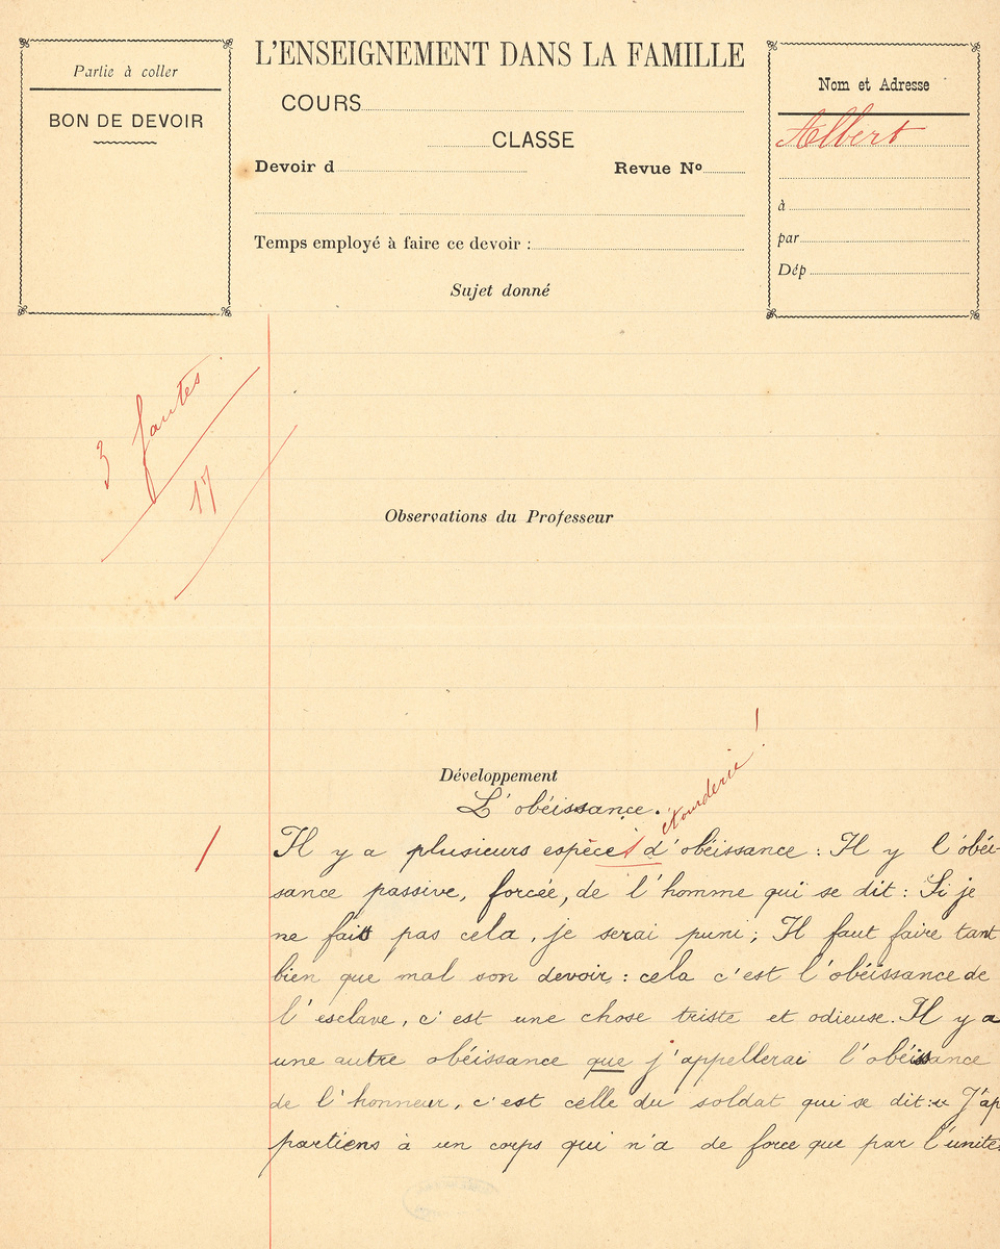 Partie à coller
BON DE DEVOIR
L'ENSEIGNEMENT DANS LA FAMILLE
COURS
CLASSE
Devoir d
Revue Nº
Temps employé à faire ce devoir :
Sujet donné
Nom et Adresse
Albert
à
par
Dép
3 fautes
17
Observations du Professeur
Développement
L'obéissance.
étourderie !
Il y a plusieurs espèces d'obéissance : Il y l'obéi-
sance passive, forcée, de l'homme qui se dit : Si je
ne fait pas cela, je serai puni ; Il faut faire tant
bien que mal son devoir : cela c'est l'obéissance de
l'esclave, c'est une chose triste et odieuse. Il y a
une autre obéissance que j'appellerai l'obéissance
de l'honneur, c'est celle du soldat qui se dit : « J'ap
partiens à un corps qui n'a de force que par l'unité